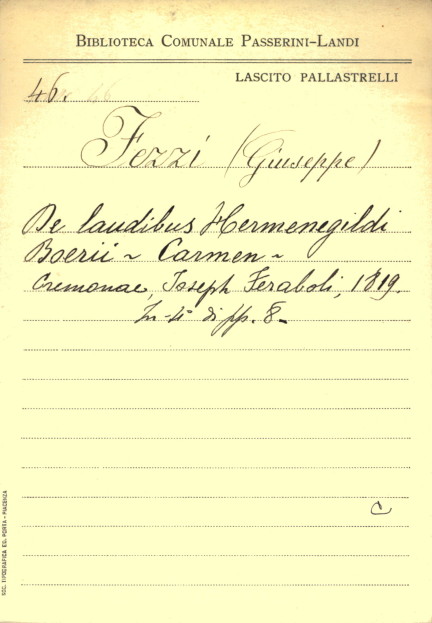 BIBLIOTECA COMUNALE PASSERINI-LANDI
LASCITO PALLASTRELLI
46.
Fezzi (Giuseppe)
De laudibus Hermenegildi
Boerii ~ Carmen ~
Cremonae, Joseph Feraboli, 1819.
In-4° di pp. 8.-
C
SOC. TIPOGRAFICA ED. PORTA - PIACENZA